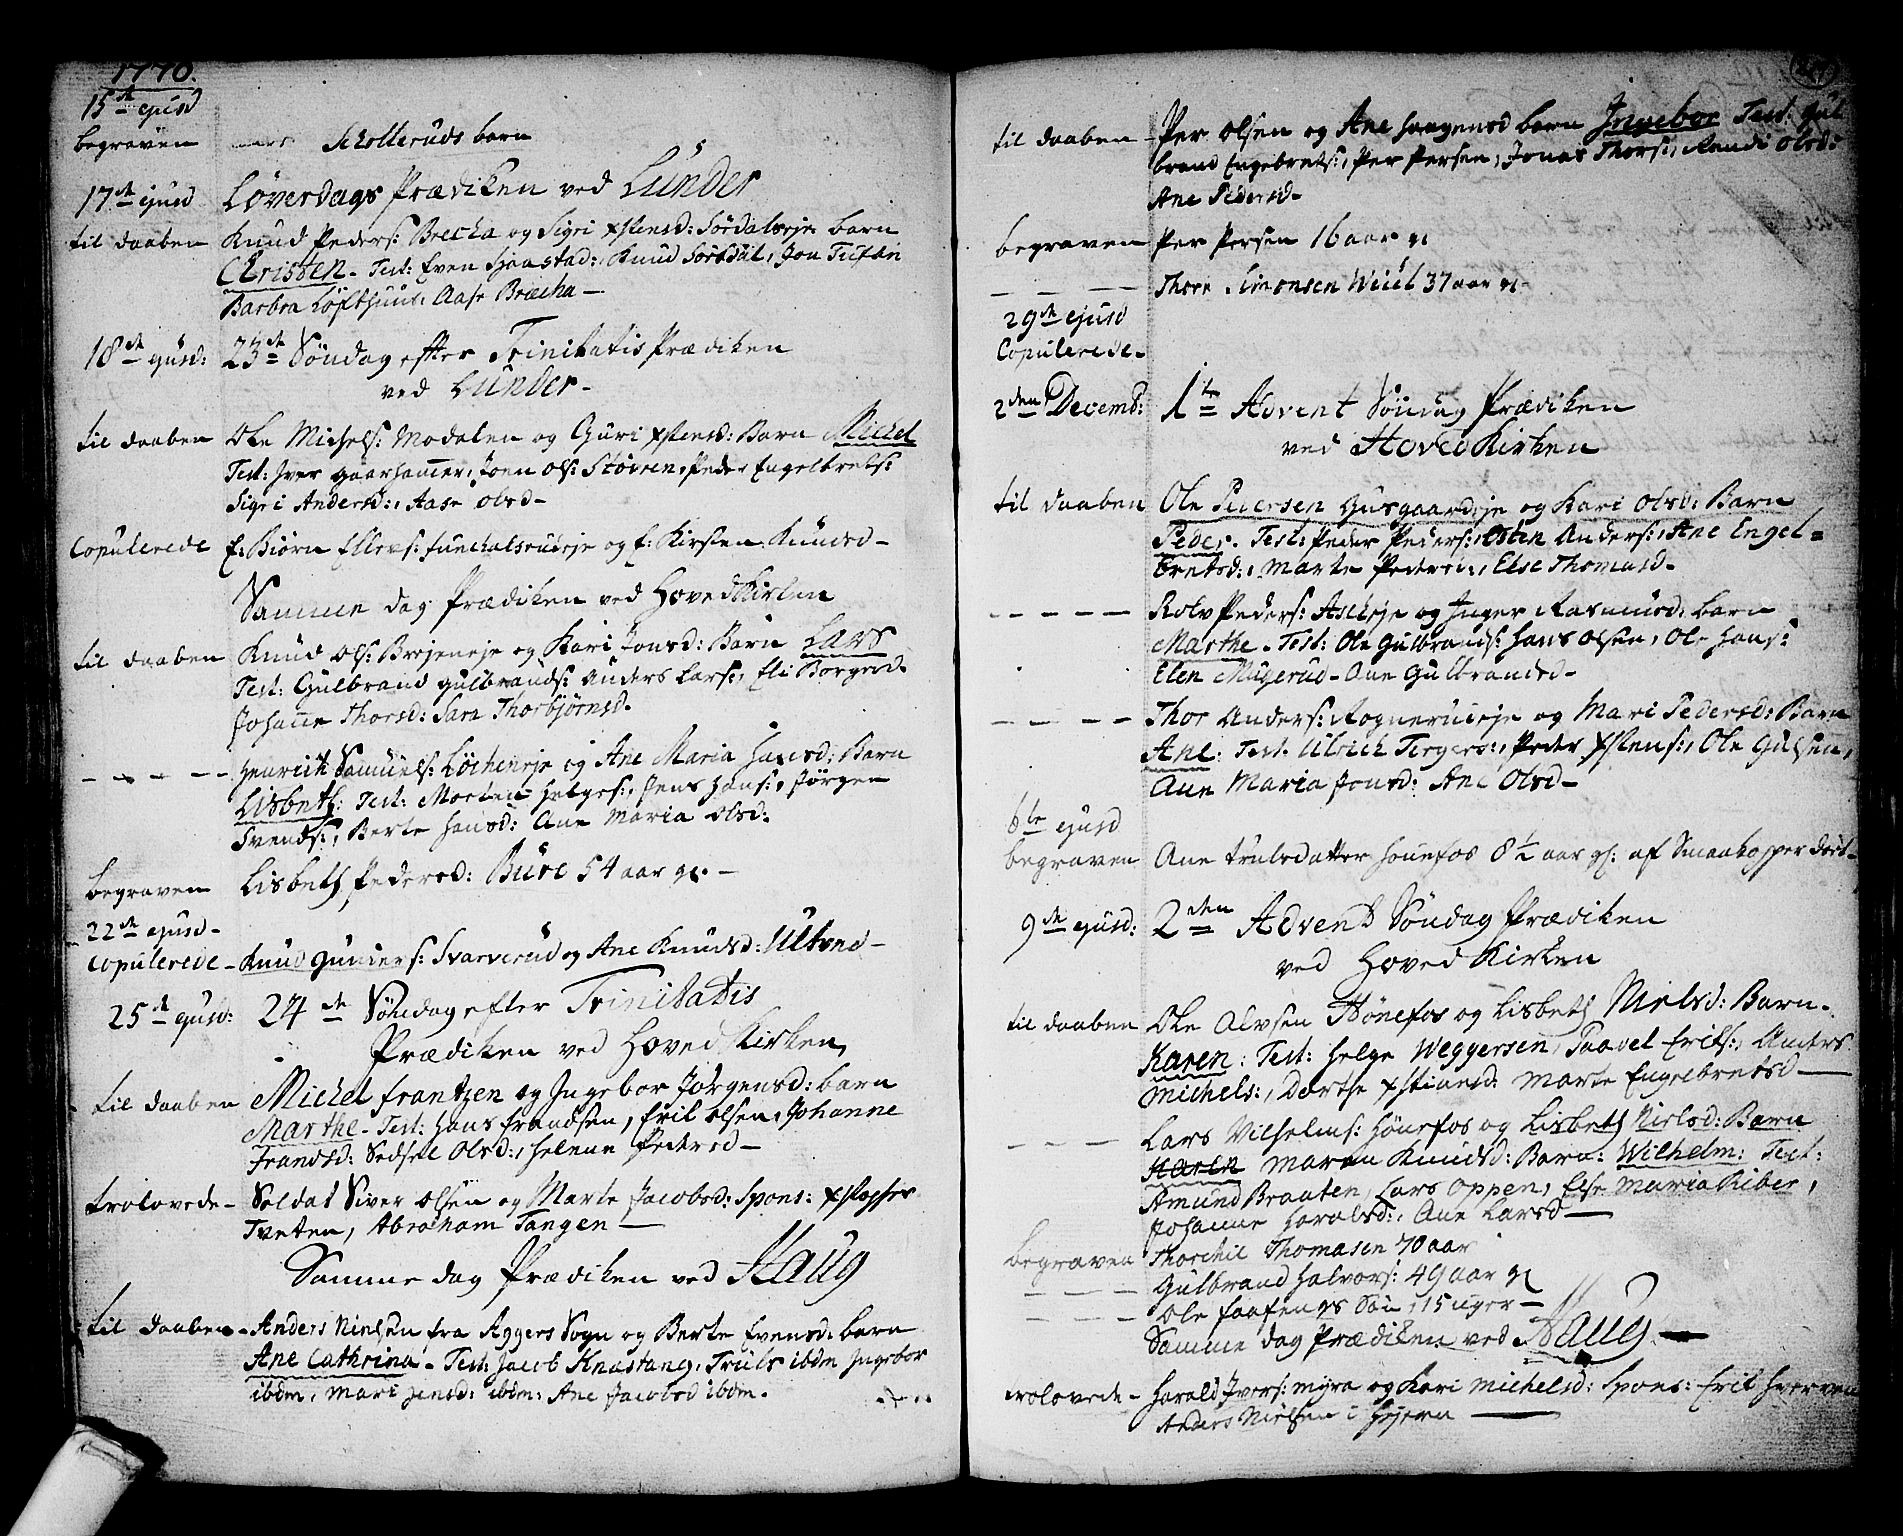 1770.
15de ejusd
begraven Scholleruds barn
17de ejusd Løverdags Prædiken ved Lunder
til daaben Knud Peders: Brecha og Sigri xstensd: Sørdalseje barn
Christen - Test: Even Sjonstad:, Knud Sørdal, Jon Tufin
Barbra Løfthuus, Aase Bræcha -
18de ejusd: 23de Søndag efter Trinitatis Prædiken
ved Lunder -
til daaben Ole Michels: Modalen og Guri xstensd: Barn Michel
Test: Iver gaarhamer, Joen ols: Støvren, Peder Engelbrets:
Sigri Andersd:, Aase olsd -
Copulerede E: Biørn Ellevs: og E: Kirsten Knudsd -
Samme dag Prædiken ved HovedKirken
til daaben Knud ols: Brejeneje og Kari Jonsd: Barn Lars
Test: Gulbrand gulbrands: Anders Lars:, Eli Borgersd.
Johanne Thorsd: Sara Thorbjørnsd.
- - - - - Henrich Samuels: Løcheneje og Ane Maria Hansd: Barn
Lisbeth: Test: Morten Helges:, Jens Hans:, Jørgen
Svends:, Berte Hansd: Ane Maria olsd:
begraven Lisbeth Pedersd: Bure 54 aar gl. -
22de ejusd -
Copulerede - Knud Gunders: Svarverud og Ane Knudsd: Ultved -
25de ejusd: 24de Søndag efter Trinitatis
Prædiken ved HovedKirken,
til daaben Michel frantzen og Ingebor Jørgensd: barn
Marthe - Test: Hans frandsen, Erik olsen, Johanne
Frandsd: Sedsel Olsd:, Helene Pedersd -
trolovede - Soldat Siver olsen og Marte Jacobsd: Spons: xstoffer
Tveten, Abraham Tangen -
Samme dag Prædiken ved Haug
til daaben - Anders Nielsen fra Aggers Sogn og Berte Evensd: barn
Ane Cathrina - Test: Jacob Knastang, Truls ibdm Ingebor
ibdm, Mari Jensd: ibdm: Ane Jacobsd ibdm.
til daaben - Per olsen og Ane Haagensd barn Ingebor Test: gul
brand Engebrets:, Per Persen, Jonas Thors:, Randi olsd:
Ane Pedersd -
begraven Per Persen 16 aar gl
- - - Thore Simonsen Weiul 37 aar gl -
29de ejusd
Copulerede -
2den Decemb: 1te Advent Søndag Prædiken
ved HovedKirken
til daaben Ole Pedersen Gusgaardeje og Kari olsd: Barn
Peder - Test: Peder Peders:, Osten Anders:, Ane Engel=
bretsd:, Marte Pedersd:, Else Thomasd -
- - - - - Rolv Peders: Askeje og Inger Rasmusd: barn
Marthe - Test: Ole Gulbrands: Hans olsen, Ole Hans:
Elen Mugerud - Ane Gulbrandsd -
- - - - - Thor Anders: Rognerudeje og Mari Pedersd: Barn
Ane: Test: Ulrich Tergers:, Peder xstens:, Ole Gulsen,
Ane Maria Jonsd: Ane Olsd -
6te ejusd
begraven Ane trulsdatter Hønefos 8½ aar gl: af Smaakopper død -
9de ejusd: 2den Advent Søndag Prædiken
ved HovedKirken
til daaben Ole Alvsen Hønefos og Lisbeth Nielsd: Barn -
Karen: Test: Helge Weggersen, Paavel Eriks:, Anders
Michels:, Dorthe xstiansd: Marte Engelbretsd -
- - - Lars Vilhelms: Hønefos og Lisbeth Nielsd: Barn
Karen Maren Knudsd: Barn: Wilhelm: Test:
Amund Braaten, Lars Oppen, Else Maria Riber,
Johanne Haralsd:, Ane Larsd -
begraven Thorchil Thomasen 70 aar
- - - Gulbrand Halvors: 49 aar gl
- - - Ole Søn, 15 uger -
Samme dag Prædiken ved Haug -
trolovede - Harald Ivers: Myra og Kari Michelsd: Spons: Erik Hverven
Anders Nielsen i Hejern -